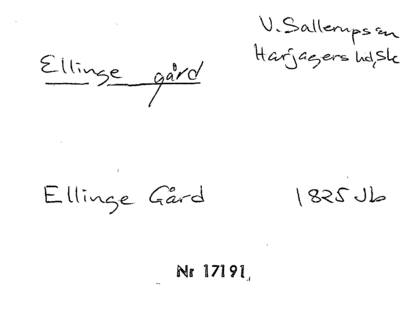 V. Sallerups sn
Harjagers hd, Sk
Ellinge gård
Ellinge Gård 1825 Jb
Nr 17191